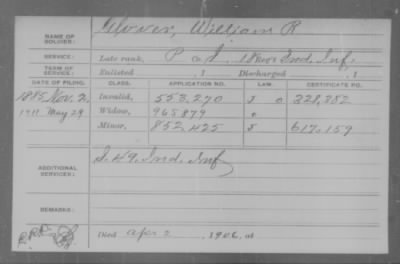 NAME OF SOLDIER: Glover, William R
SERVICE: Late rank, P Co. I, 18 Reg't Ind. Inf.
TERM OF SERVICE: Enlisted , 1 Discharged , 1
DATE OF FILING. CLASS. APPLICATION NO. LAW. CERTIFICATE NO.
1885 Nov. 2, Invalid, 553,270 J O 328,382
1911 May 29 Widow, 965879 O
Minor, 852,425 J 617,159
ADDITIONAL SERVICES: I. 49, Ind. Inf
REMARKS:
Died Apr 2 1906, at